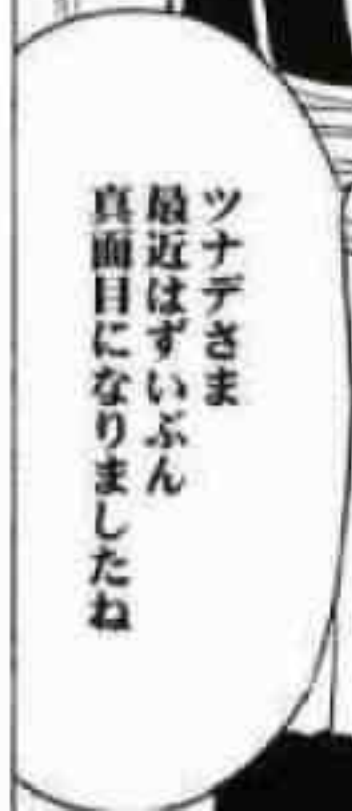 ツナデさま
最近はずいぶん
真面目になりましたね